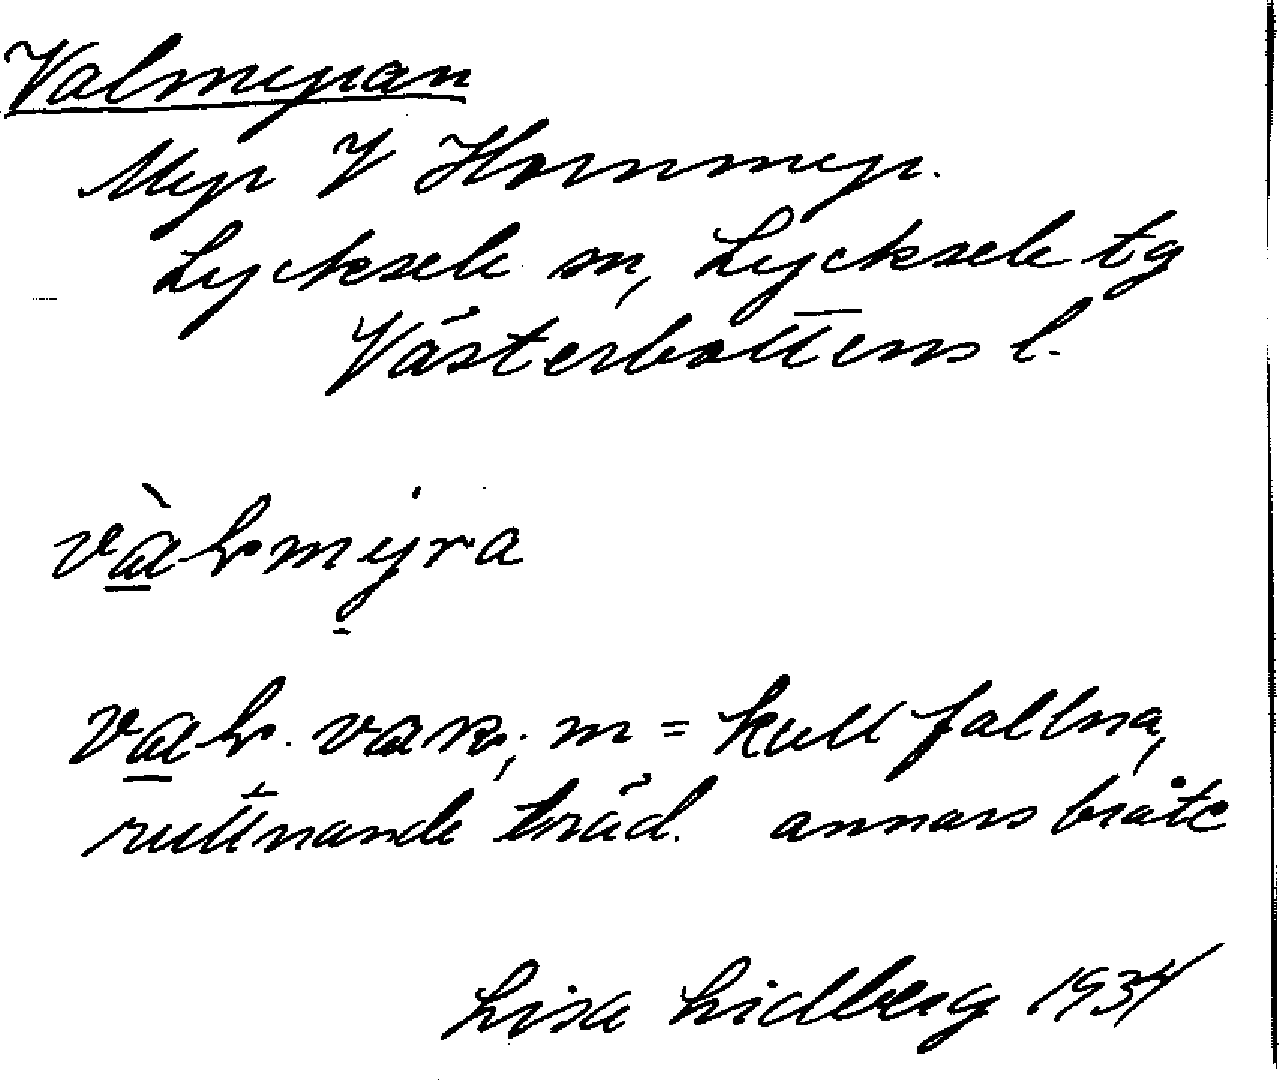 Valmyran
Myr V Hornmyr.
Lycksele sn, Lycksele tg
Västerbottens l.
m = kullfallna,
ruttnande träd. annars bråte
Lisa Lidberg 1934